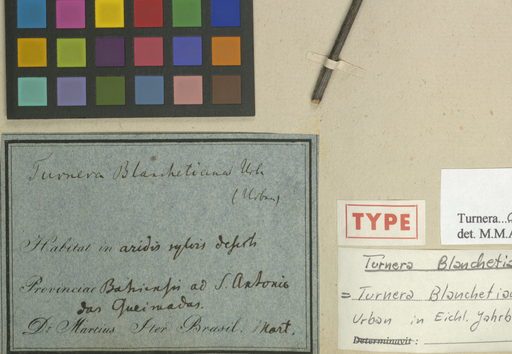 Turnera Blanchetiana Urb.
(Urban)
Habitat in aridis sylvis desert
Provinciae Bahiensis ad S. Antonio
das Queimadas.
Dr. Martius Iter Brasil. Mart.
TYPE
Turnera...
det. M.M.A
Turnera Blanchetia
= Turnera Blanchetia
Urban in Eichl. Jahrb
Determinavit :